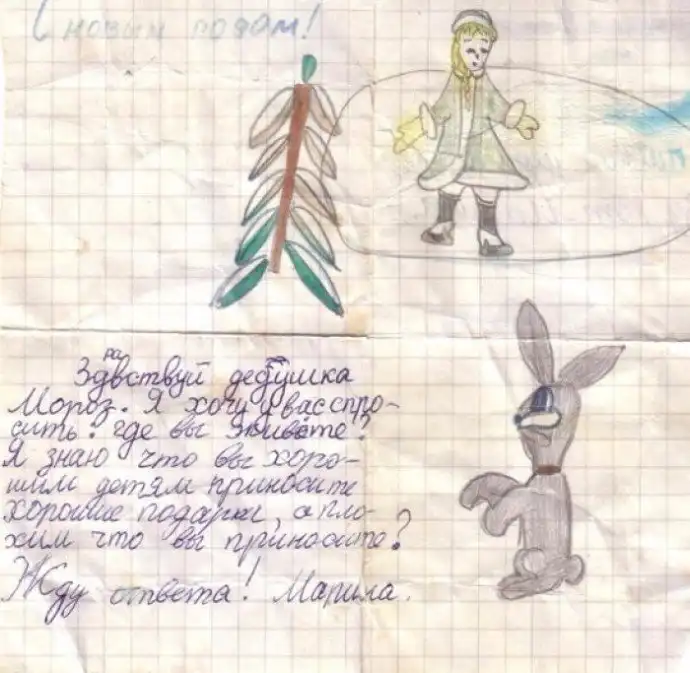 С новым годам!
Здравствуй дедушка
Мороз. Я хочу у вас спро-
сить: где вы живёте?
Я знаю что вы хоро-
шим детям приносите
хорошие подарки, а пло-
хим что вы приносите?
Жду ответа! Марина.